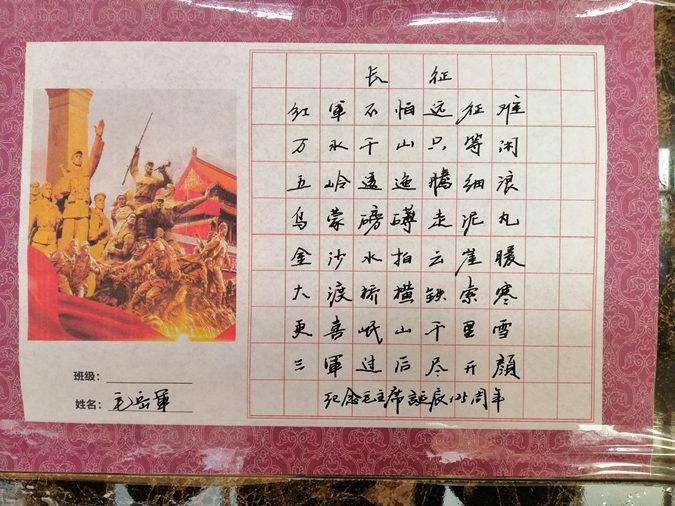 长征
红軍不怕远征难
万水千山只等闲
五岭逶迤腾细浪
乌蒙磅礴走泥丸
金沙水拍云崖暖
大渡桥横鉄索寒
更喜岷山千里雪
三軍过后尽开顔
纪念毛主席誕辰125周年
班级：
姓名：毛岳軍